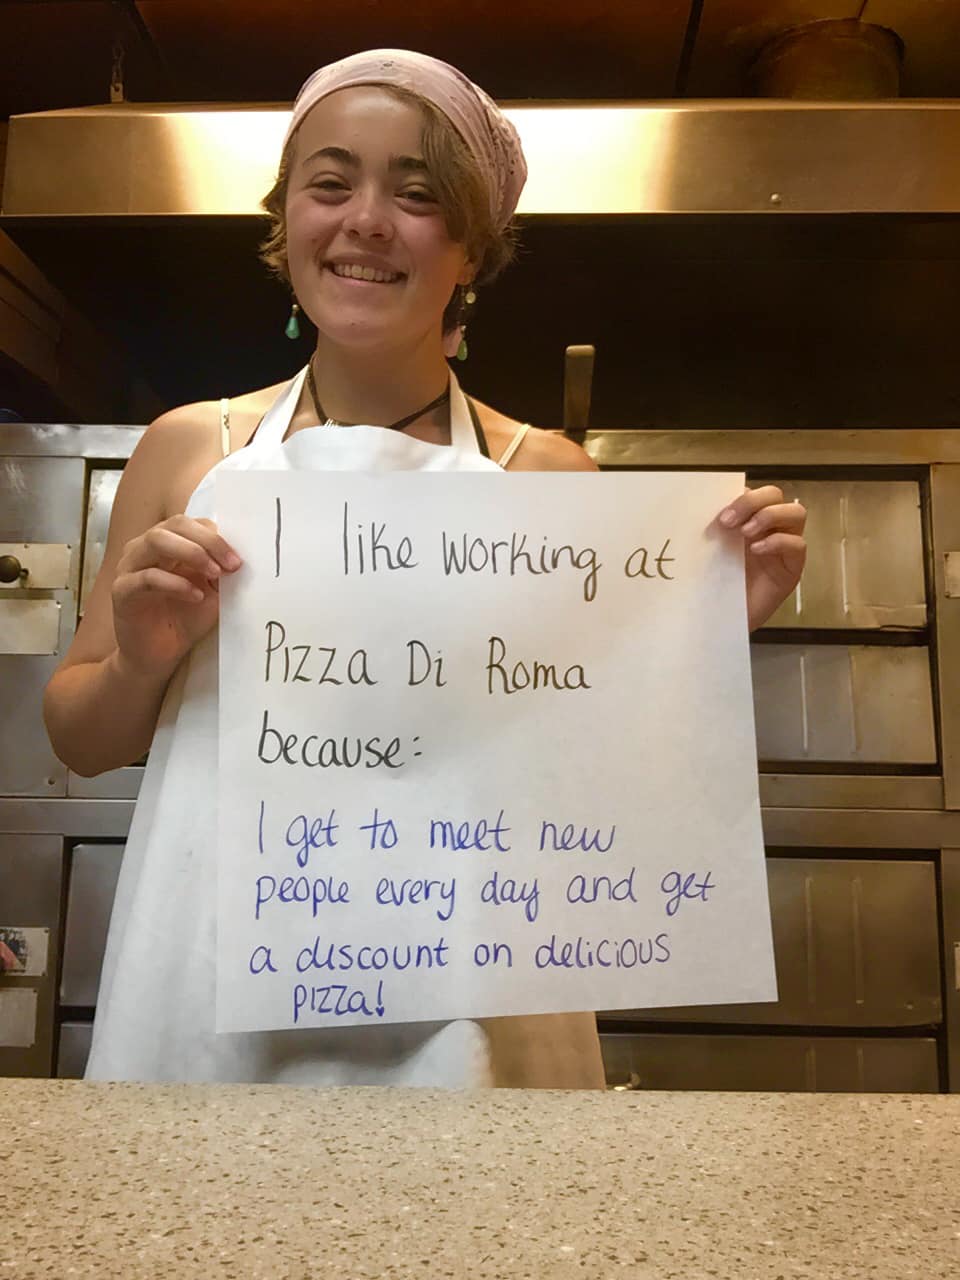 I like working at
Pizza Di Roma
because:
I get to meet new
people every day and get
a discount on delicious
pizza!